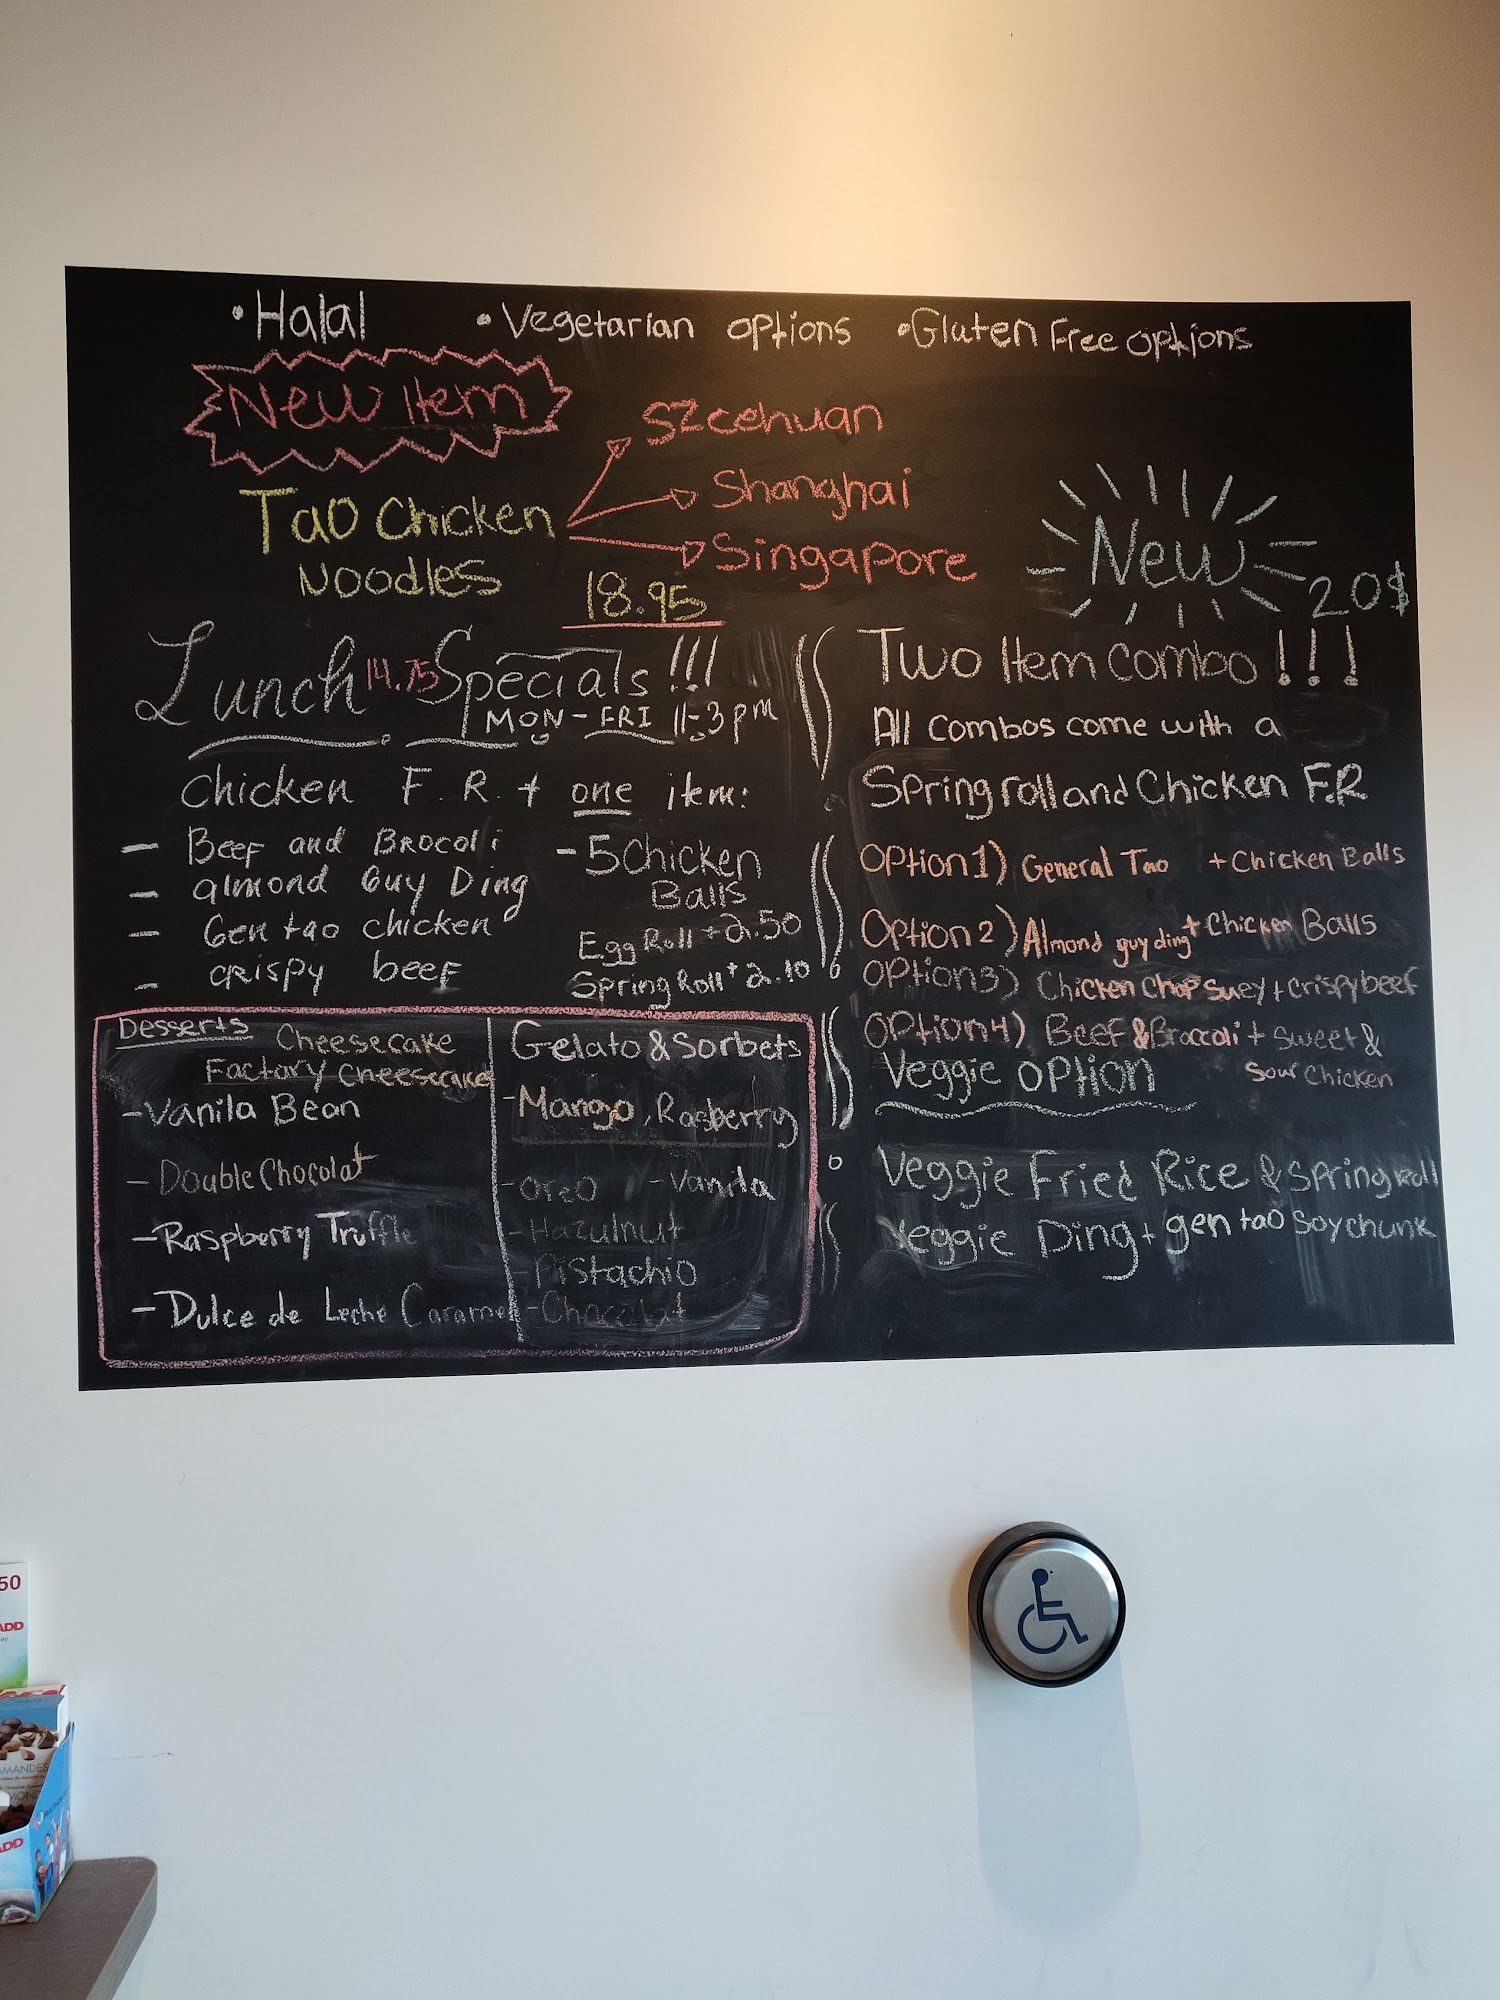 •Halal •Vegetarian options •Gluten Free options
New Item
Szcehuan
Tao Chicken Noodles
Shanghai
Singapore
18.95
New
20$
Lunch 14.75 Specials!!!
MON-FRI 11-3pm
Chicken F.R. + one item:
- Beef and Brocoli
- almond Guy Ding
- Gen tao chicken
- crispy beef
- 5 Chicken
Balls
Egg Roll + 2.50
Spring Roll + 2.10
Two Item Combo!!!
All combos come with a
Spring roll and Chicken F.R
Option 1) General Tao + Chicken Balls
Option 2) Almond guy ding + Chicken Balls
Option 3) Chicken Chop Suey + crispy beef
Option 4) Beef & Brocoli + Sweet &
Sour Chicken
Veggie Option
Veggie Fried Rice & Spring roll
Veggie Ding + gen tao Soy chunk
Desserts
Cheesecake
Factory Cheesecake
- Vanila Bean
- Double Chocolat
- Raspberry Truffle
- Dulce de Leche Caramel
Gelato & Sorbets
- Mango, Rasberry
- Oreo - Vanila
- Hazulnut
- Pistachio
- Chocolat
50
ADD
AMANDES
ADD